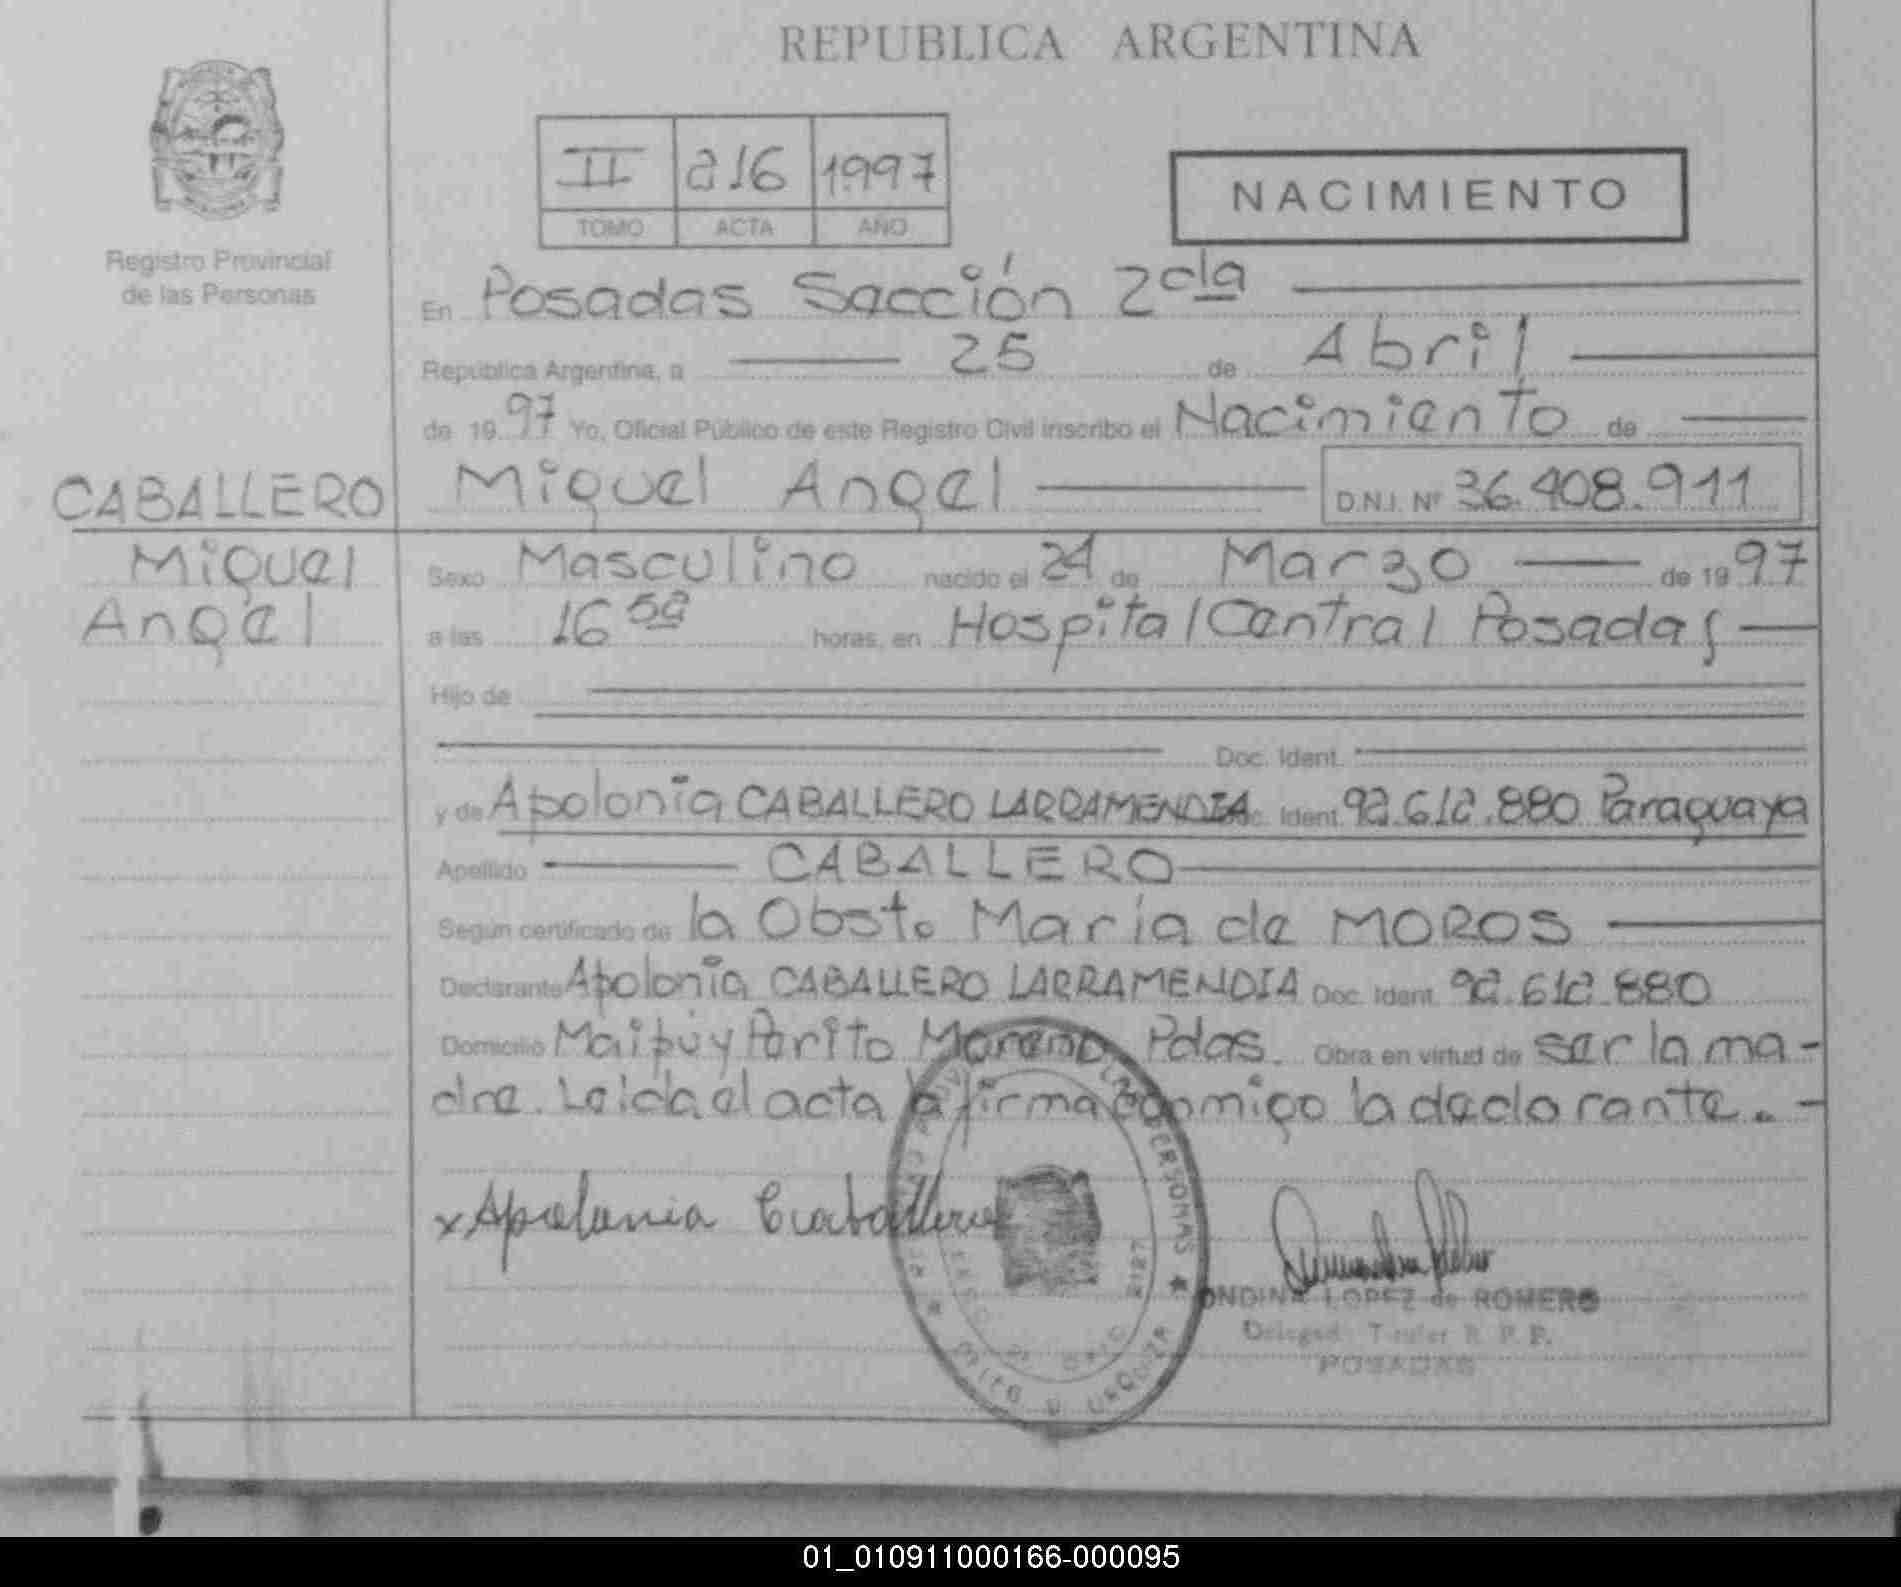 REPUBLICA ARGENTINA
II 216 1997
TOMO ACTA AÑO
NACIMIENTO
Registro Provincial
de las Personas
En Posadas Sección 2da
República Argentina, a 25 de Abril
de 1997 Yo, Oficial Público de este Registro Civil inscribo el Nacimiento de
CABALLERO Miguel Angel D.N.I. Nº 36.408.911
Miguel Sexo Masculino nacido el de Marzo de 1997
Angel a las 16 horas, en Hospital Central Posadas
Hijo de
Doc. Ident.
y de Apolonia CABALLERO LARRAMENDIA Doc. Ident. 92.612.880 Paraguaya
Apellido CABALLERO
Según certificado de la Obst. María de MOROS
Declarante Apolonia CABALLERO LARRAMENDIA Doc. Ident. 92.612.880
Domicilio Maipú y Perito Moreno Pdas. Obra en virtud de ser la ma-
dre. Leida el acta la firma conmigo la declarante.-
x Apolonia Caballero
ONDINA LOPEZ de ROMERO
Delegada Titular R. P. P.
POSADAS
01_010911000166-000095